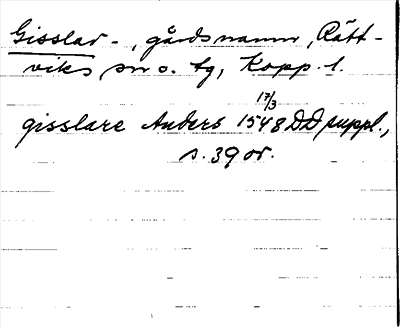 Gisslar-, gårdsnamn, Rätt-
viks sn o. tg, Kopp. l.
17/3
gisslare Anders 1548 DD suppl.,
s. 39 or.